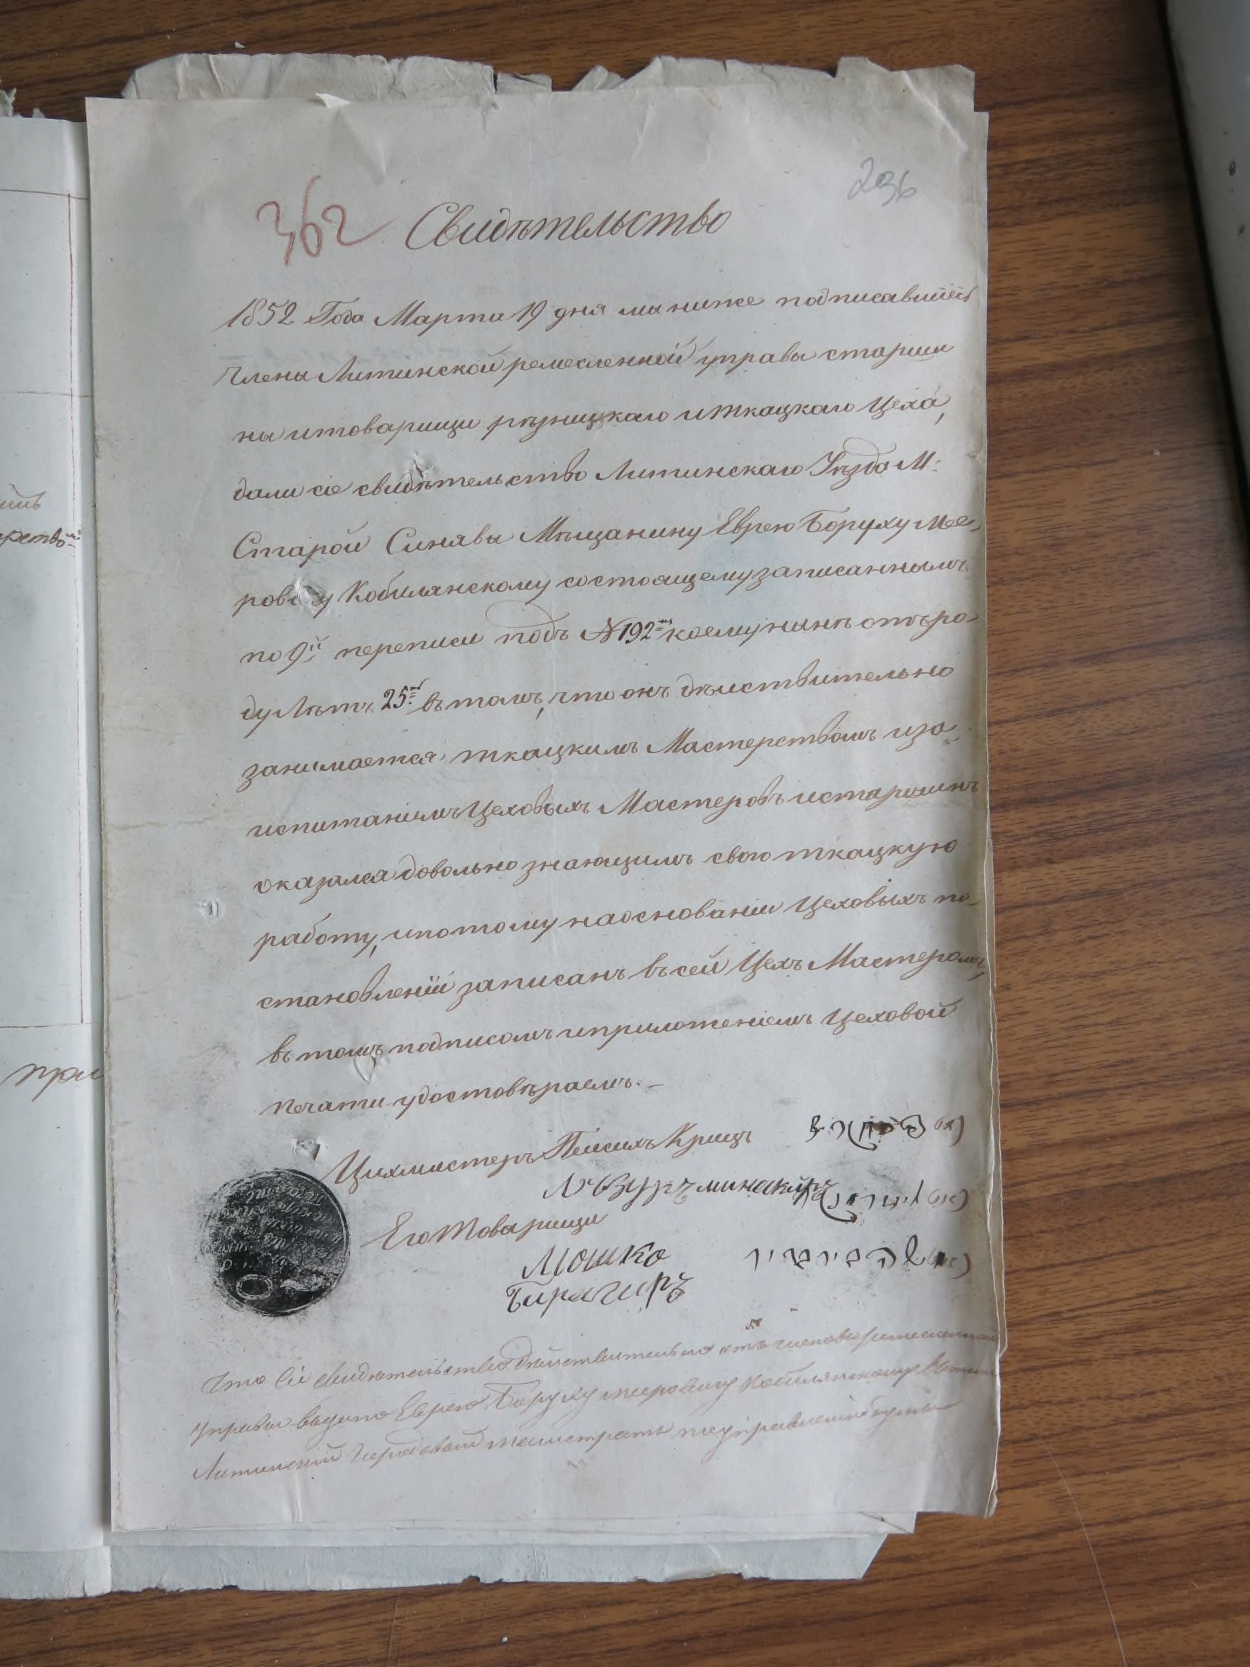 362 236
Свидѣтельство
1852 Года Марта 19 дня мы ниже подписавшіесь
Члены Литинской ремесленной управы старши
ны и товарищи рѣзницкаго и ткацкаго Цеха,
дали сіе свидѣтельство Литинскаго Уѣзда М:
Старой Синявы Мѣщанину Еврею Боруху Мее,
ров у Кобилянскому состоящему записаннымъ
по 9й переписи подъ №192мъ коему нынѣ отъ ро
ду Лѣтъ 25ть въ томъ, что онъ дѣиствительно
занимается ткацкимъ Мастерствомъ и за
испитаніемъ Цеховыхъ Мастеровъ и старшинъ
оказался довольно знающимъ свою ткацкую
работу, и потому на основаніи Цеховыхъ по-
становленій записанъ въ сей Цехъ Мастеромъ,
въ томъ подписомъ и приложеніемъ Цеховой
печати удостовѣраемъ.-
Цихмистеръ Пейсихъ Крицъ
Его Товарищи
Мошко
Что сіе свидѣтельство дѣйствительно отъ членовъ ремесленной
управы выдано Еврею Боруху Меировичу Кобилянскому въ томъ
Литинскій Городовый Магистратъ
при